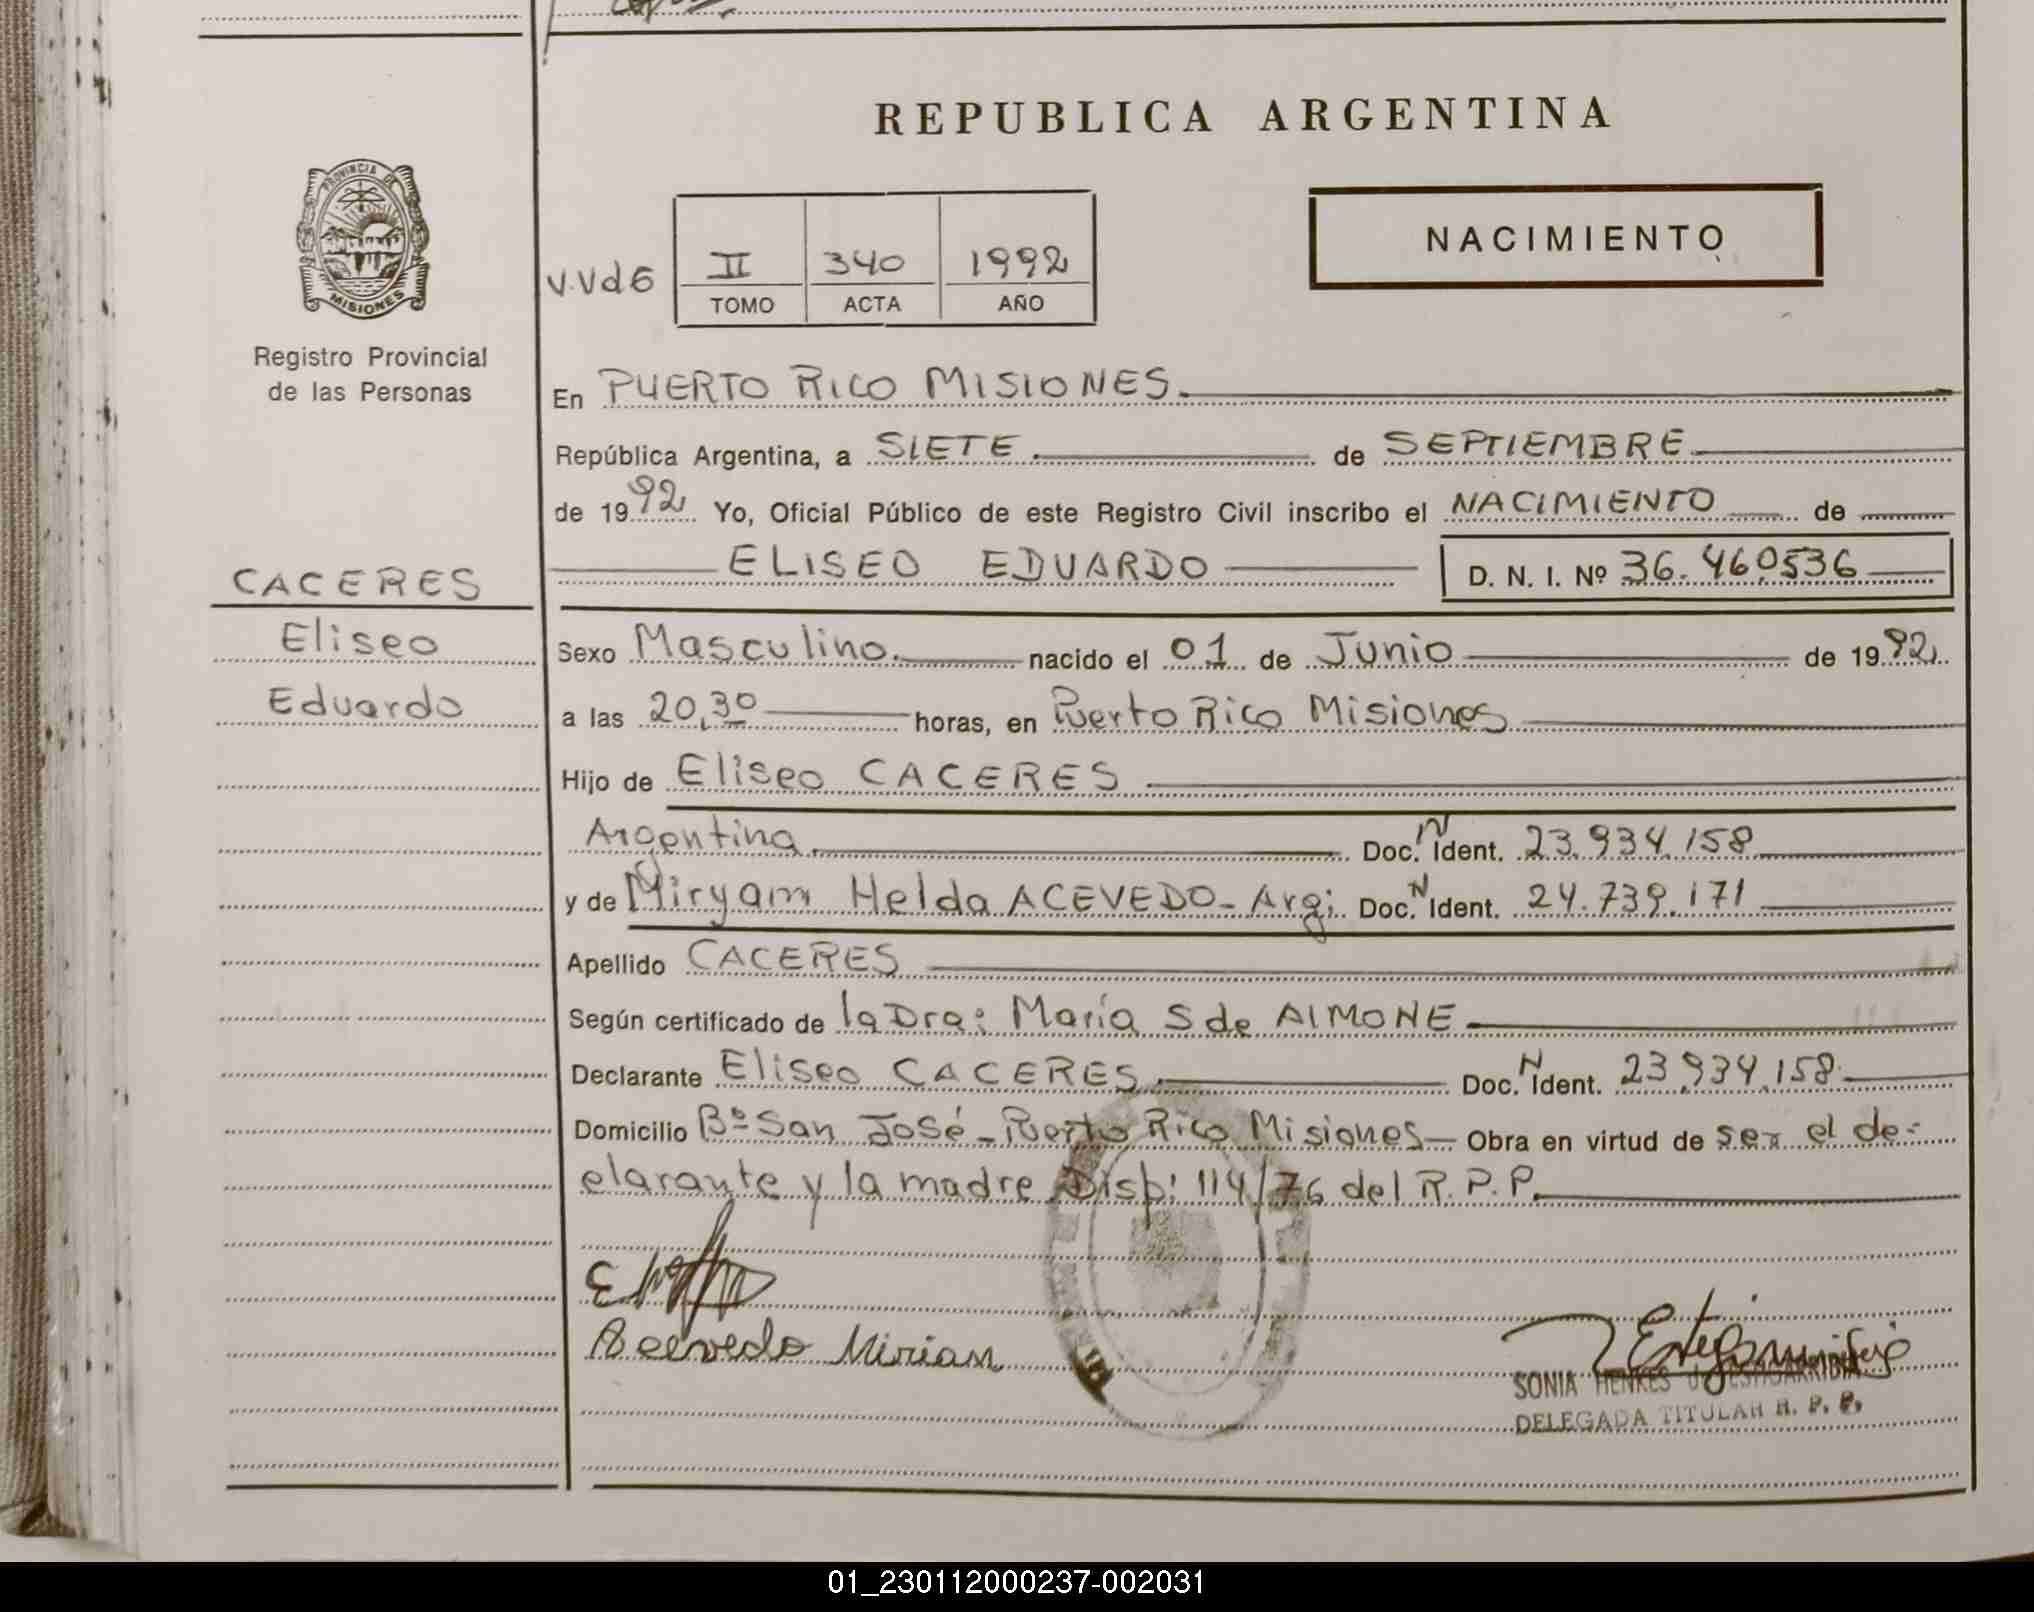 REPUBLICA ARGENTINA
PROVINCIA DE
MISIONES
Registro Provincial
de las Personas
NACIMIENTO
V.Vd6
II 340 1992
TOMO ACTA AÑO
En PUERTO RICO MISIONES
República Argentina, a SIETE de SEPTIEMBRE
de 1992 Yo, Oficial Público de este Registro Civil inscribo el NACIMIENTO de
ELISEO EDUARDO D. N. I. Nº 36.460536
CACERES
Eliseo
Eduardo
Sexo Masculino. nacido el 01 de Junio de 1992
a las 20,30 horas, en Puerto Rico Misiones
Hijo de Eliseo CACERES
Argentina. Doc. N Ident. 23.934.158
y de Miryam Helda ACEVEDO- Arg; Doc. N Ident. 24.739.171
Apellido CACERES
Según certificado de la Dra: María S de AIMONE
Declarante Eliseo CACERES Doc. N Ident. 23.934.158
Domicilio Bº San José - Puerto Rico Misiones - Obra en virtud de ser el de-
clarante y la madre Disp: 114/76 del R.P.P.
Acevedo Mirian
SONIA HENKES
DELEGADA TITULAR R. P. P.
01_230112000237-002031